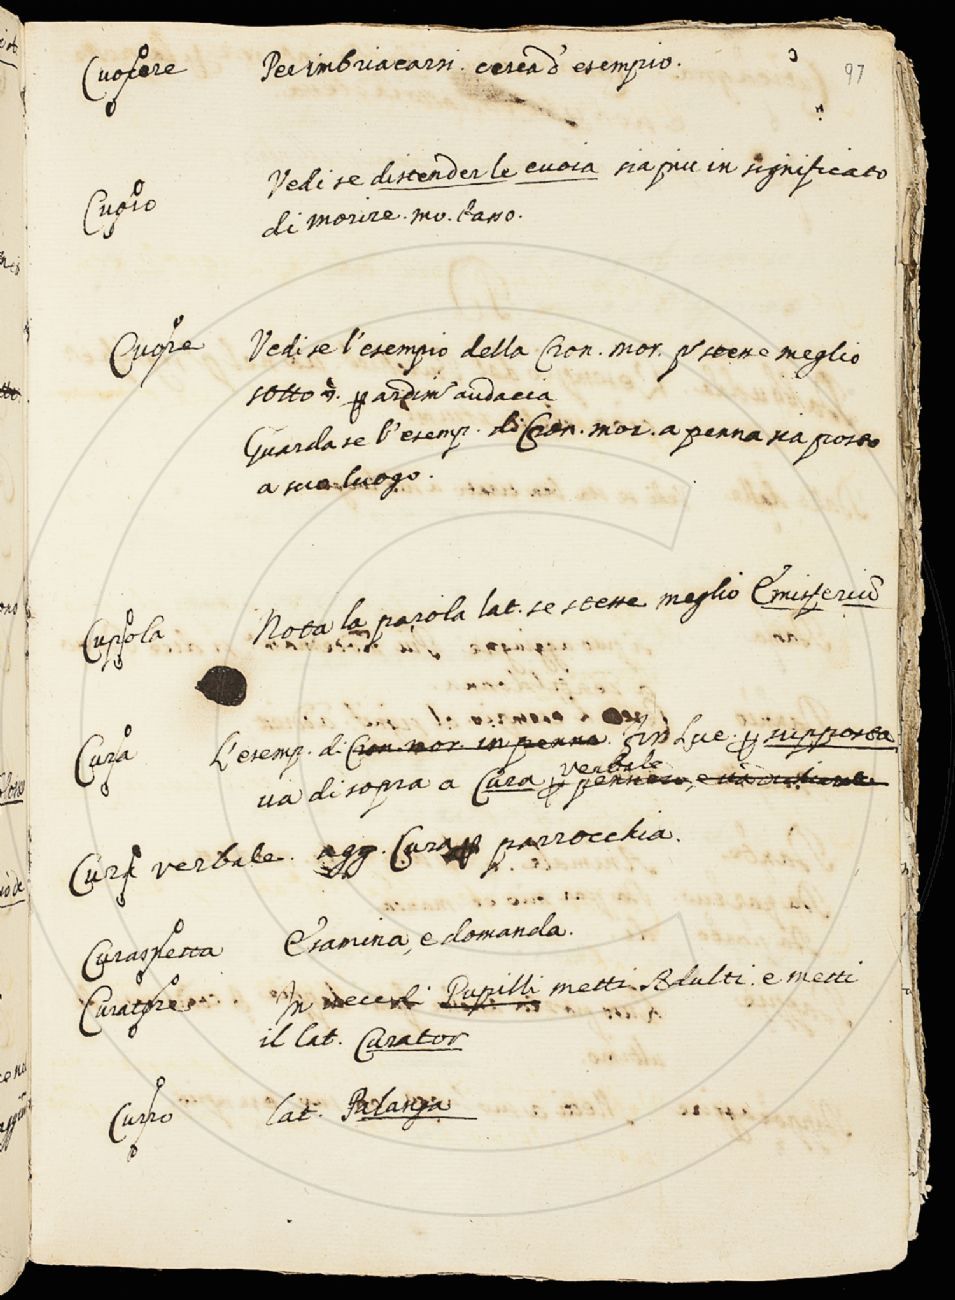 97
Cuocere Per imbriacarsi. cerca d' esempio.
Cuoio Vedi se distender le cuoia sia piu in significato
di morire. mo. basso.
Cuore Vedi se l'esempio della Cron. mor. p. stesse meglio
sotto §. p ardim.to audacia
Guarda se l'esemp. di Cron. mor. a penna sia posto
a suo luogo.
Cupola Nota la parola lat. se stesse meglio Emisferiu
Cura L'esemp. di Cron. mor. in penna. Fir Lue. p supposta
verbale
va di sopra a Cura p pensiero, e
Cura verbale. agg. Cura p parrocchia.
Curasnetta Esamina, e domanda.
Curatore In vece di Pupilli metti Adulti. e metti
il lat. Curator
Curro lat. Palanga